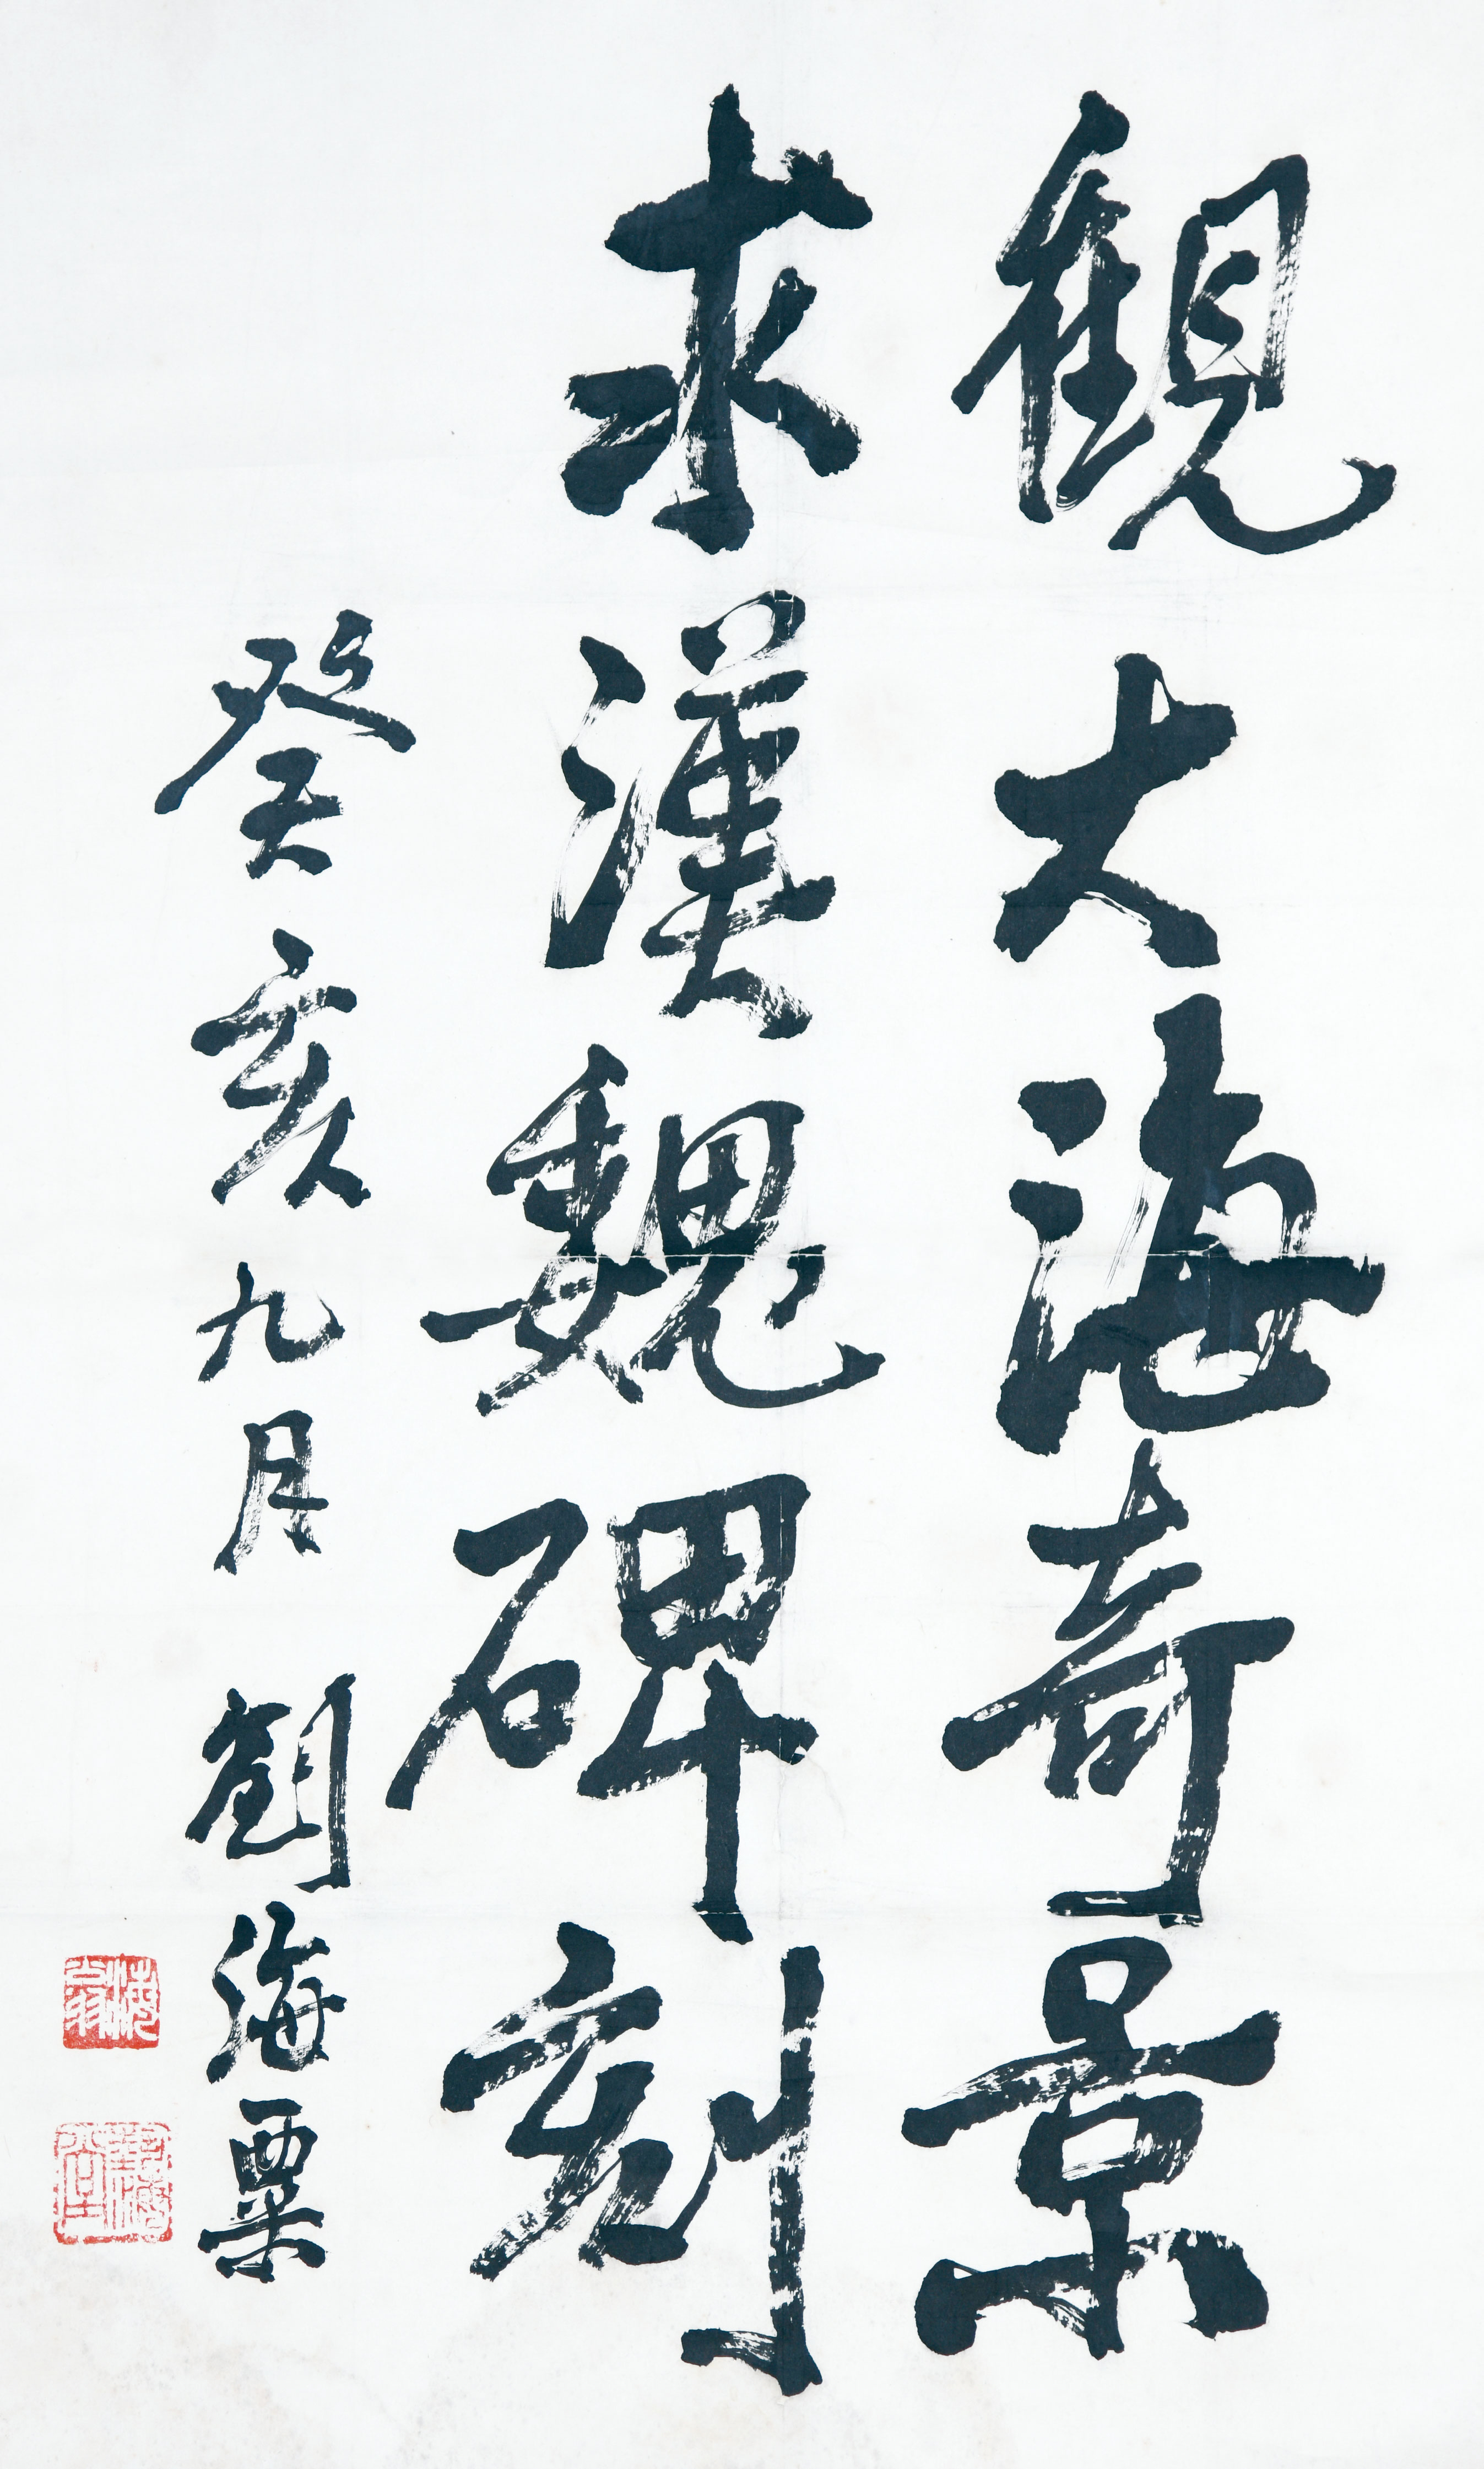 觀大海奇景
求漢魏碑刻
癸亥九月 劉海粟